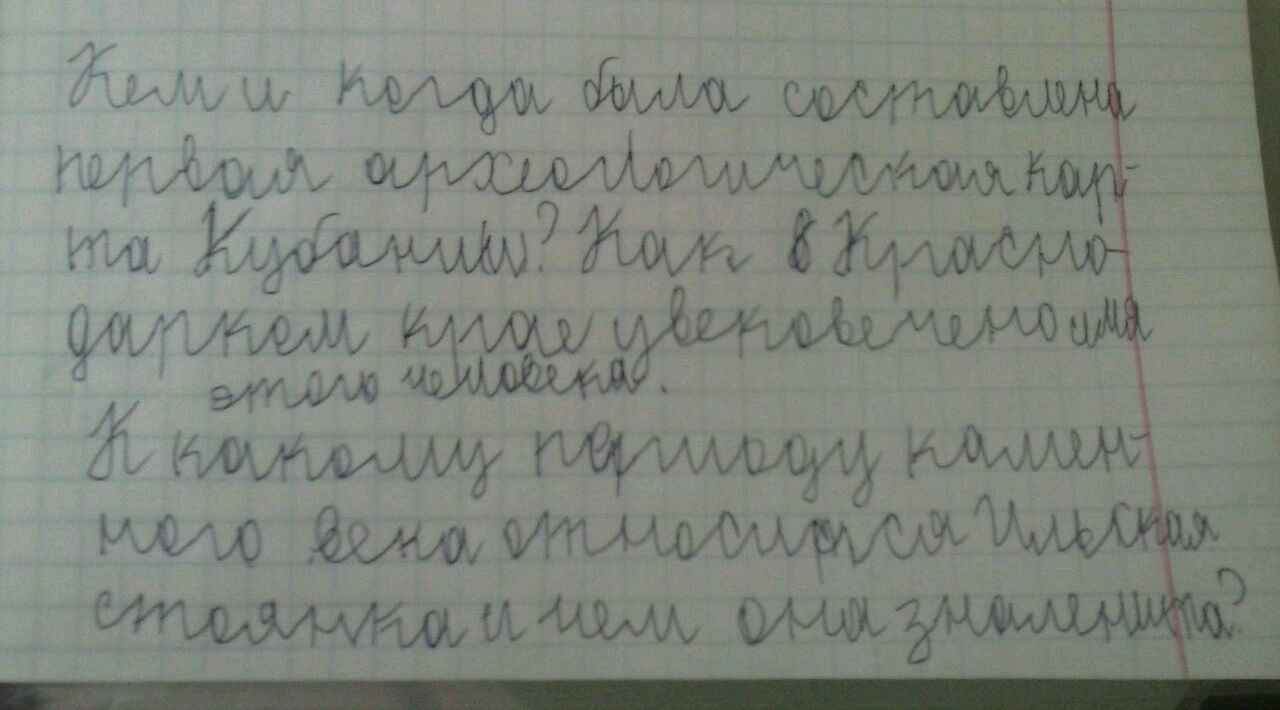 Кем и когда была составлена
первая археологическая кар-
та Кубании? Как в Красно-
дарком крае увековечено имя
этого человека.
К какому периоду камен-
ного века относится Ильская
стоянка и чем она знаменита?